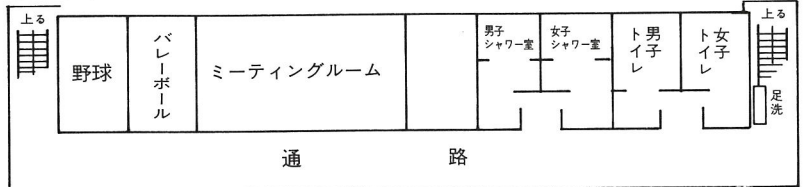 上る
野球
バレーボール
ミーティングルーム
男子
シャワー室
女子
シャワー室
男子
トイレ
女子
トイレ
上る
足洗
通路